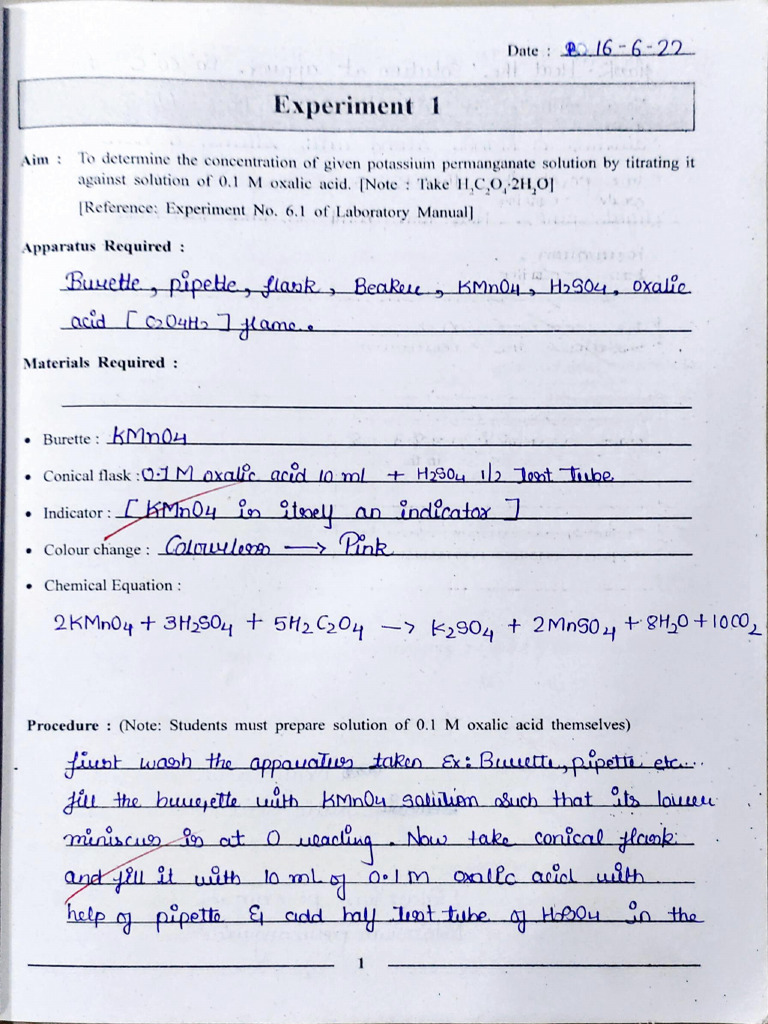 Date : 16-6-22
Experiment 1
Aim : To determine the concentration of given potassium permanganate solution by titrating it
against solution of 0.1 M oxalic acid. [Note : Take H₂C₂O₄·2H₂O]
[Reference: Experiment No. 6.1 of Laboratory Manual]
Apparatus Required :
Burette, pipette, flask, Beaker, KMnO4, H2SO4, oxalic
acid [C2O4H2] flame.
Materials Required :
• Burette : KMnO4
• Conical flask : 0.1 M oxalic acid 10 ml + H2SO4 1/2 Test Tube
• Indicator : [KMnO4 is itself an indicator]
• Colour change : Colourless → Pink
• Chemical Equation :
2KMnO4 + 3H2SO4 + 5H2C2O4 → K2SO4 + 2MnSO4 + 8H2O + 10CO2
Procedure : (Note: Students must prepare solution of 0.1 M oxalic acid themselves)
first wash the apparatus taken Ex: Burette, pipette etc...
fill the with KMnO4 solution such that its lower
miniscus is at 0 reading. Now take conical flask
and fill it with 10 ml of 0.1M oxalic acid with
help of pipette & add half test tube of H2SO4 in the
1